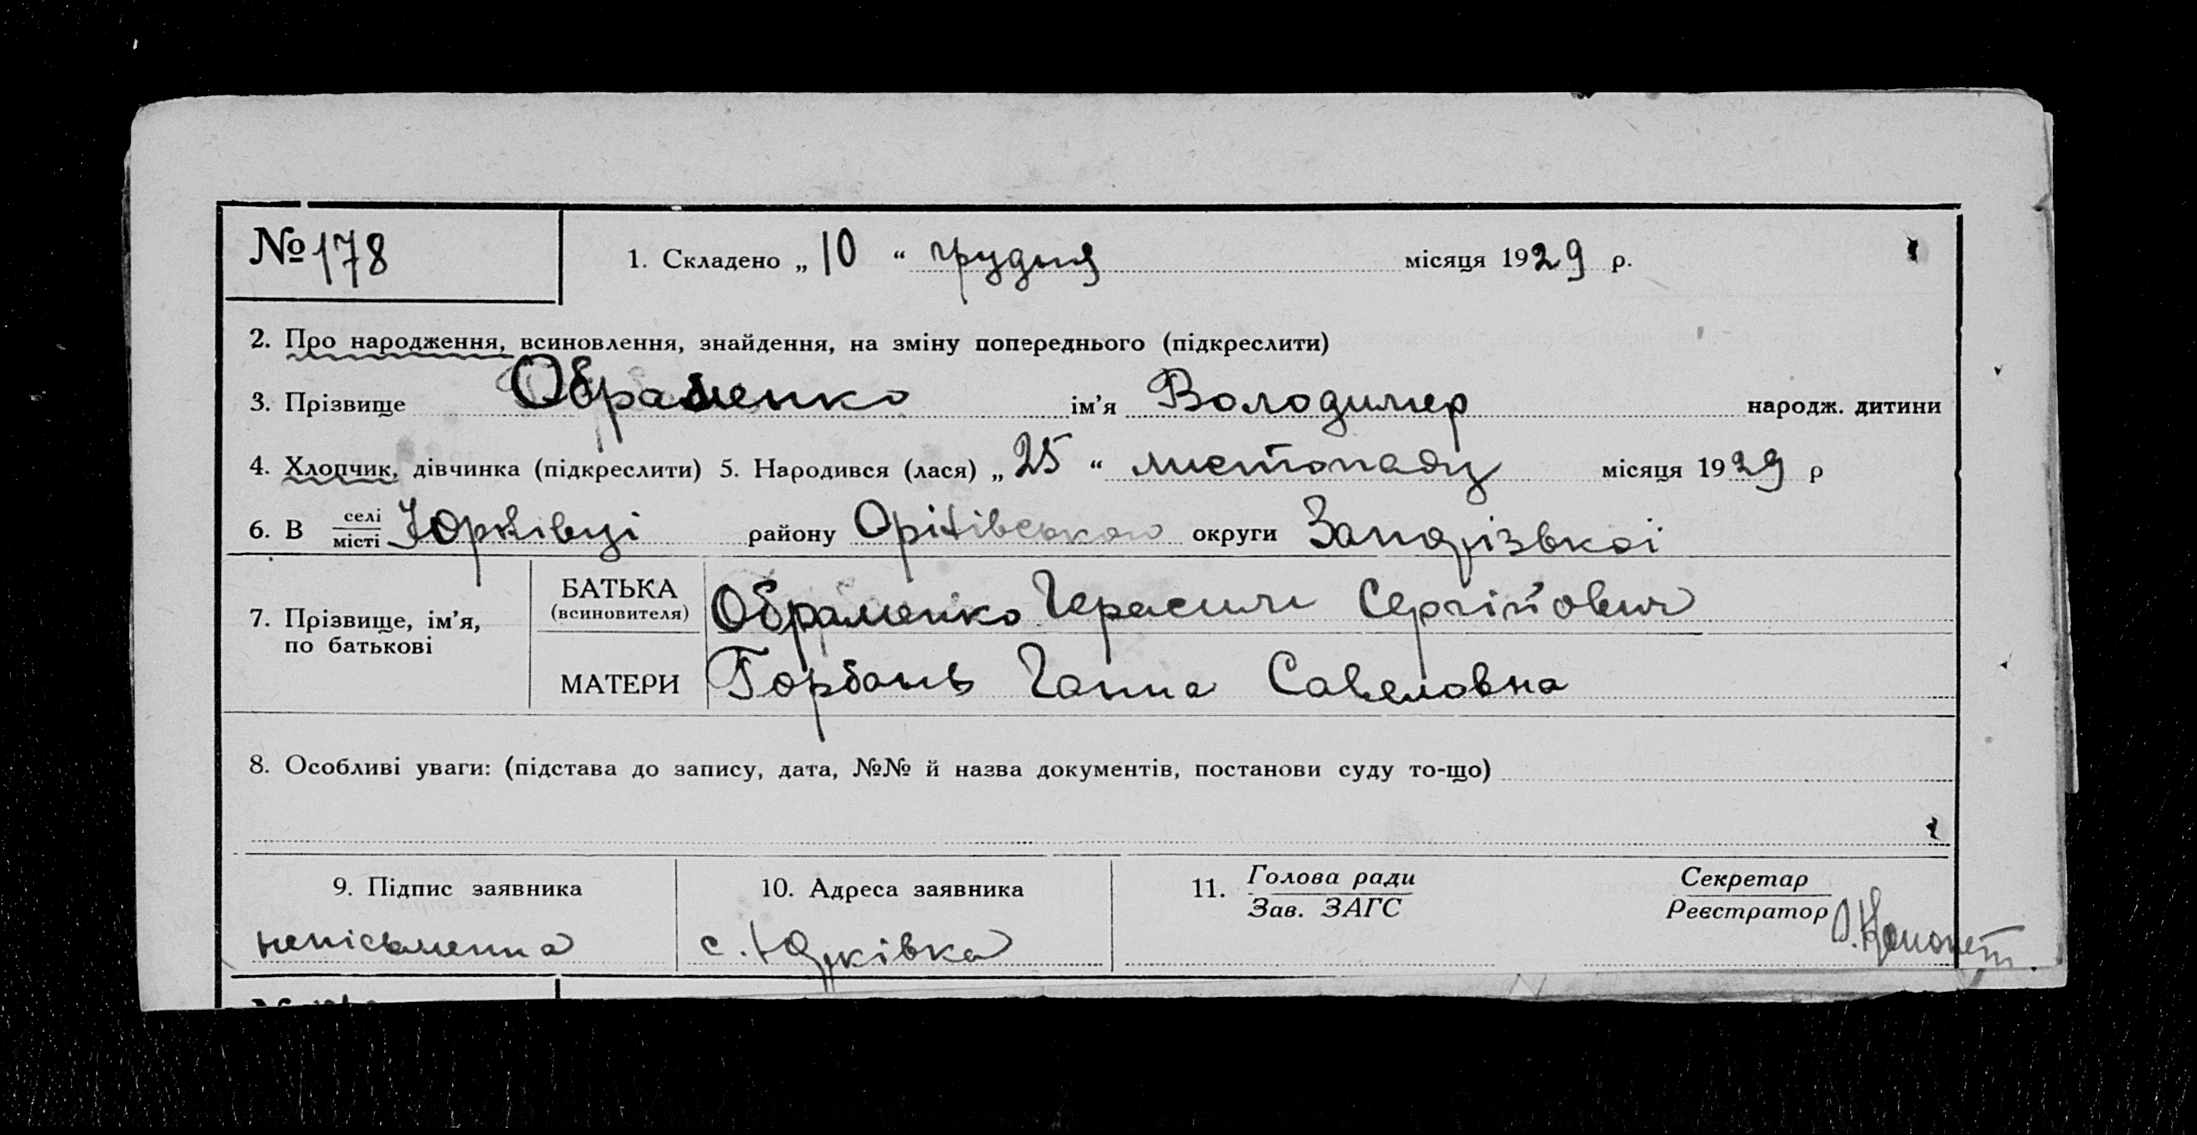 № 178
1. Складено „10“ грудня місяця 1929 р.
2. Про народження, всиновлення, знайдення, на зміну попереднього (підкреслити)
3. Прізвище Обраменко ім’я Володимер народж. дитини
4. Хлопчик, дівчинка (підкреслити) 5. Народився (лася) „25“ листопаду місяця 1929 р
6. В селі місті Юрківці району Оріхівського округи Запорізької
7. Прізвище, ім’я, по батькові
БАТЬКА (всиновителя) Обраменко Герасим Сергійович
МАТЕРИ Горбань Ганна Савеловна
8. Особливі уваги: (підстава до запису, дата, №№ й назва документів, постанови суду то-що)
9. Підпис заявника 10. Адреса заявника 11. Голова ради Зав. ЗАГС Секретар Реєстратор
неписьменна с. Юрківка